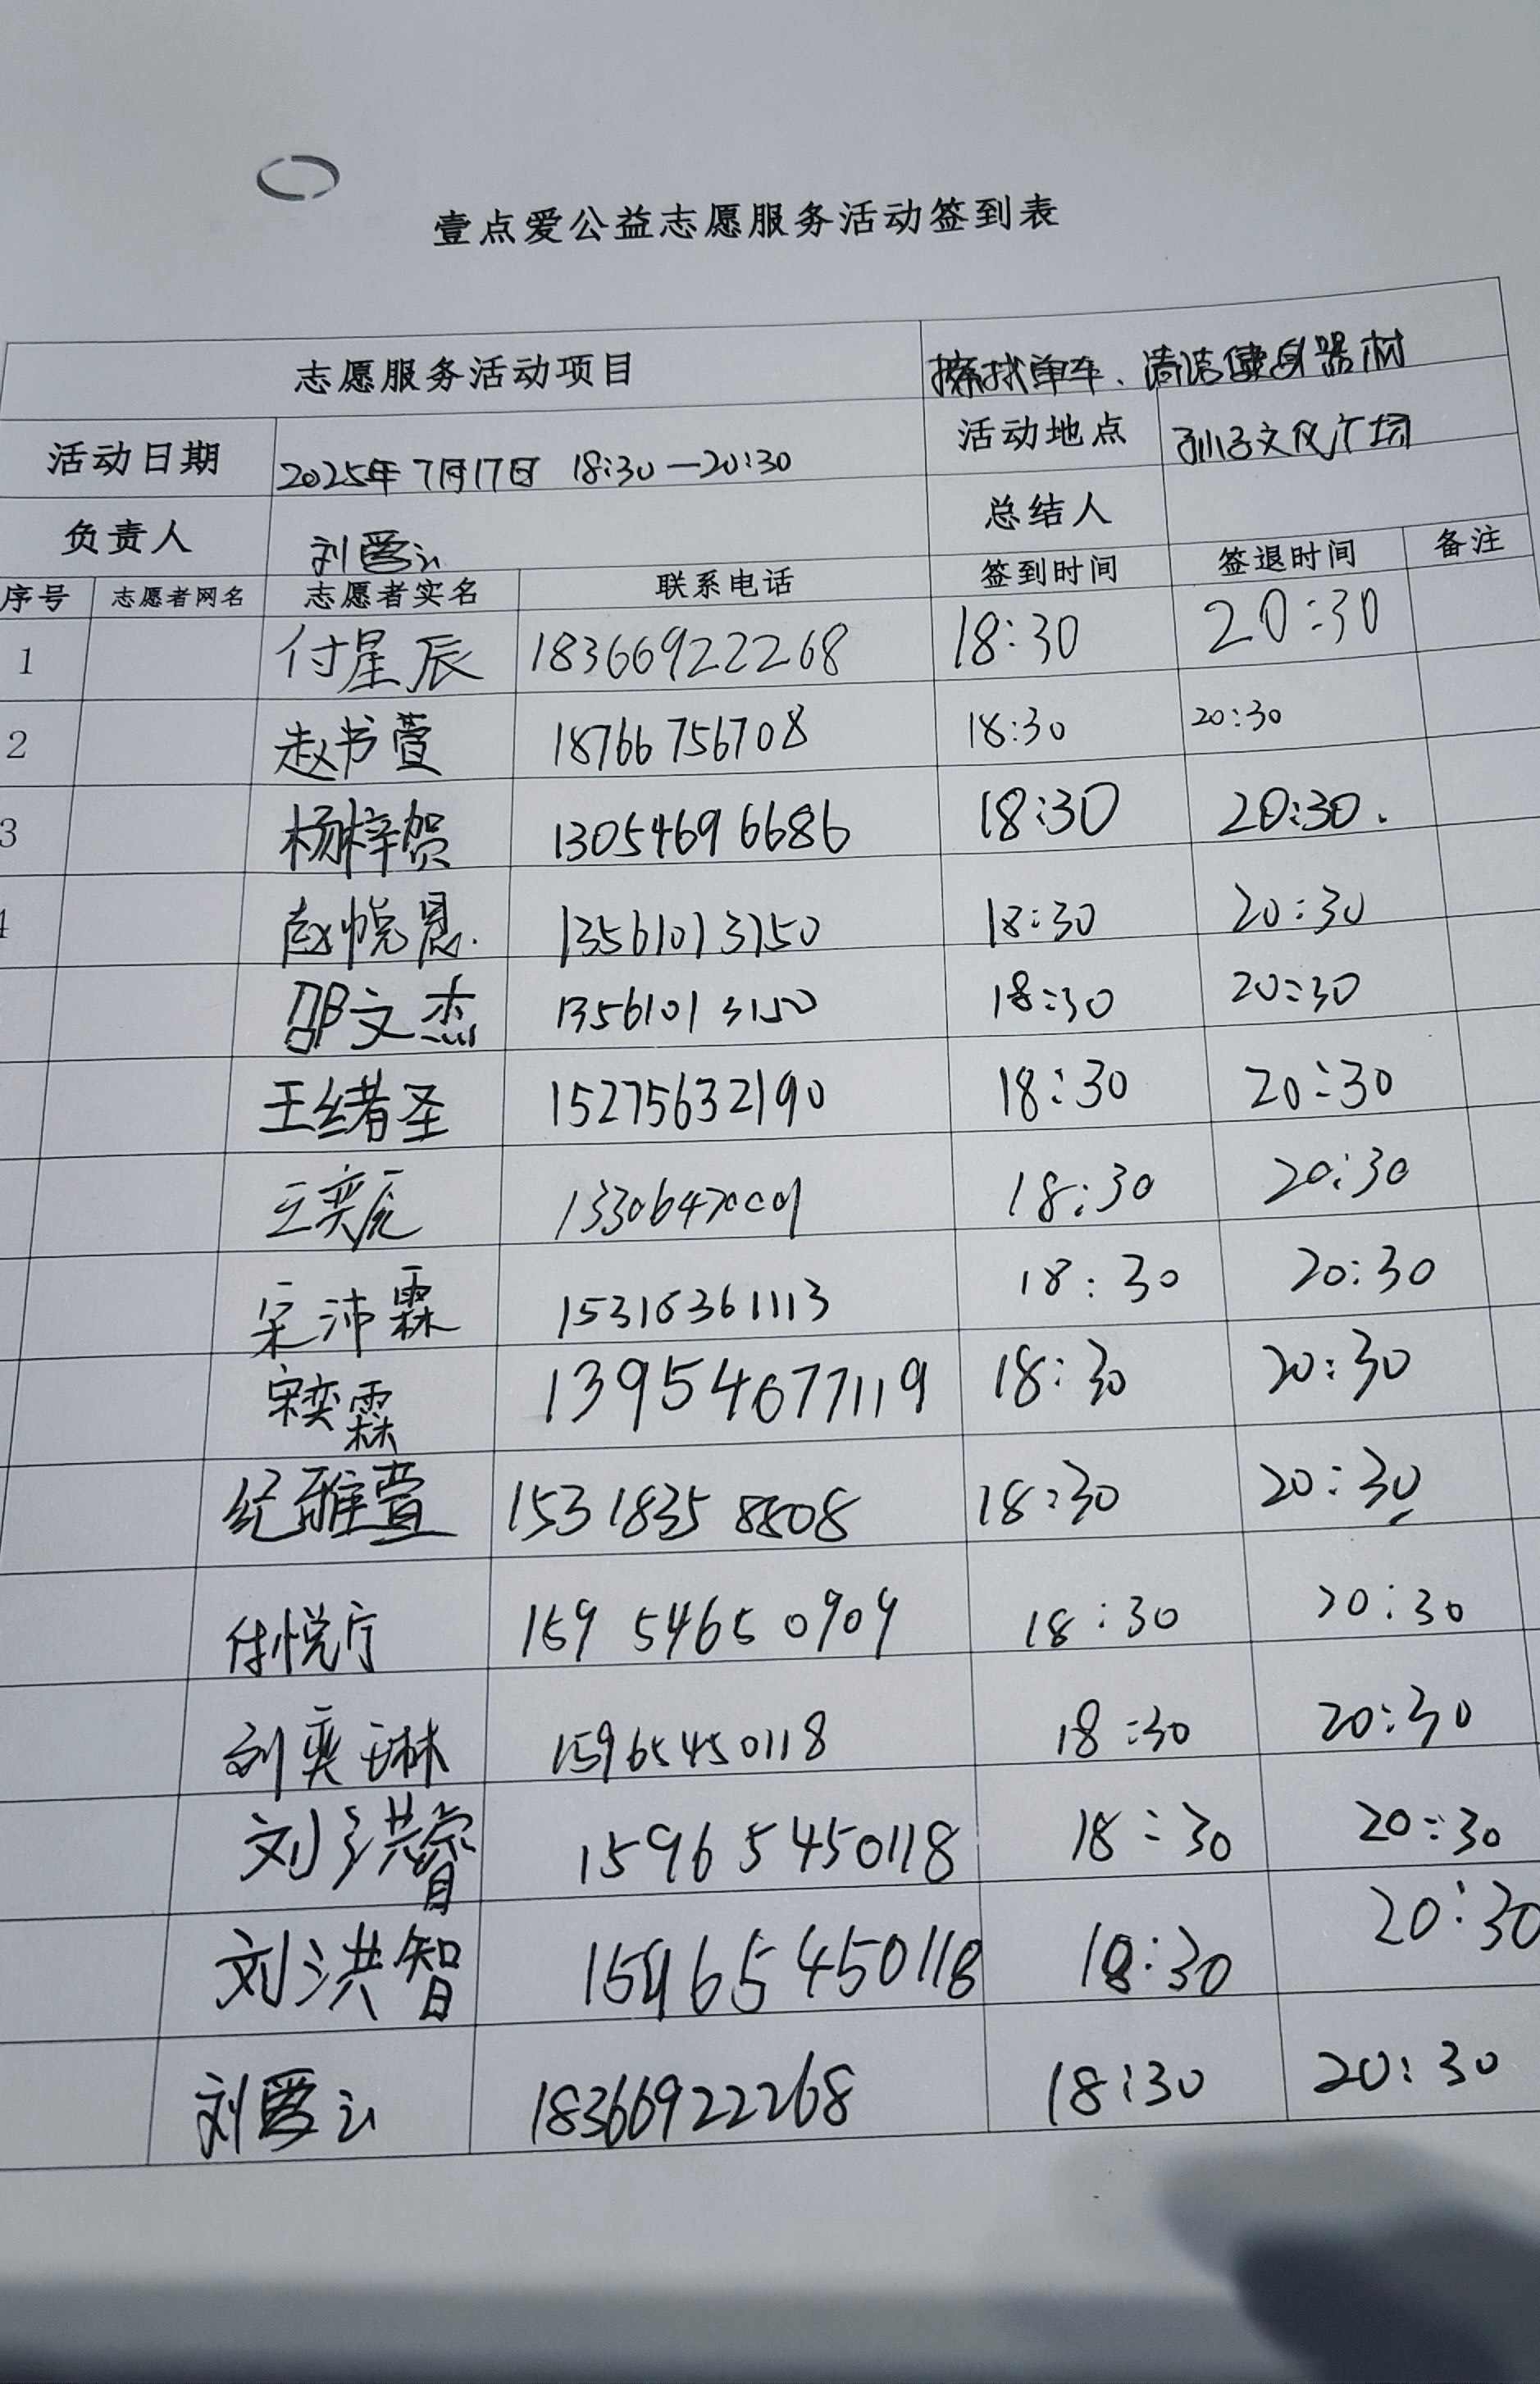 壹点爱公益志愿服务活动签到表
志愿服务活动项目 擦拭单车、清洁健身器材
活动日期 2025年7月17日 18:30—20:30 活动地点 孙子文化广场
负责人 刘爱云 总结人
序号 志愿者网名 志愿者实名 联系电话 签到时间 签退时间 备注
1 付星辰 18366922268 18:30 20:30
2 赵书萱 18766756708 18:30 20:30
3 杨梓贺 13054696686 18:30 20:30.
4 赵悦恩. 13561013150 18:30 20:30
邵文杰 13561013150 18:30 20:30
王绪圣 15275632190 18:30 20:30
王奕辰 18:30 20:30
宋沛霖 15316361113 18:30 20:30
宋奕霖 13954677119 18:30 20:30
纪雅萱 15318358808 18:30 20:30
悦宁 159 54650909 18:30 20:30
刘奕琳 15965450118 18:30 20:30
刘洪睿 15965450118 18:30 20:30
刘洪智 15965450118 18:30 20:30
刘爱云 18366922268 18:30 20:30